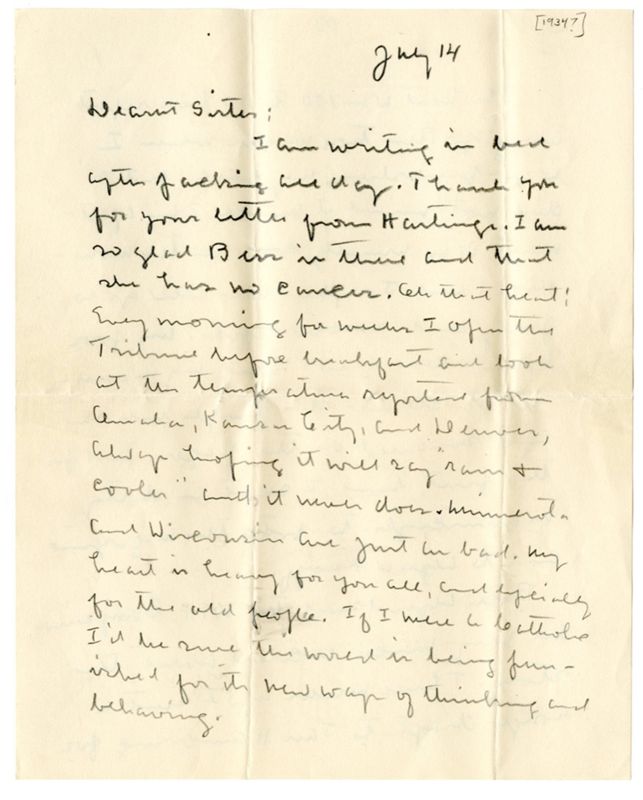 [1934?]
July 14
Dearest Sister;
I am writing in bed
after packing all day. Thank you
for your letter from Hastings. I am
so glad Bess is there and that
she has no cancer. Oh that heat!
Every morning for weeks I open the
Tribune before breakfast and look
at the temperatures reported from
Omaha, Kansas City, and Denver,
always hoping it will say "rain +
cooler" and it never does. Minnesota
and Wisconsin are just as bad. My
heart is heavy for you all, and especially
for the old people. If I were a Catholic
I'd be sure the world is being pun-
ished for its new ways of thinking and
behaving.